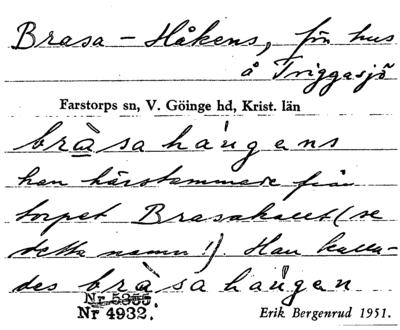 Brasa-Håkens, förr hus
å Triggasjö
Farstorps sn, V. Göinge hd, Krist. län
bràsa há'ugens
han härstammade från
torpet Brasakallt (se
detta namn!) Han kalla-
des bràsa háugen
Nr 5355
Nr 4932.
Erik Bergenrud 1951.